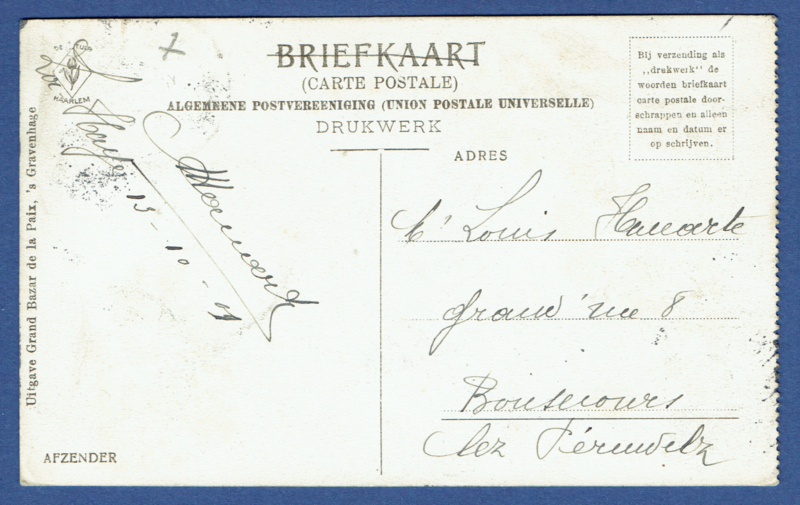 BRIEFKAART
(CARTE POSTALE)
ALGEMEENE POSTVEREENIGING (UNION POSTALE UNIVERSELLE)
DRUKWERK
Bij verzending als
„drukwerk” de
woorden briefkaart
carte postale door-
schrappen en alleen
naam en datum er
op schrijven.
DE TULP
HAARLEM
Uitgave Grand Bazar de la Paix, 's Gravenhage
La Haye
13-10-
ADRES
Mr Louis Hauvarte
Grand'rue 8
Bonsecours
lez Péruwelz
AFZENDER